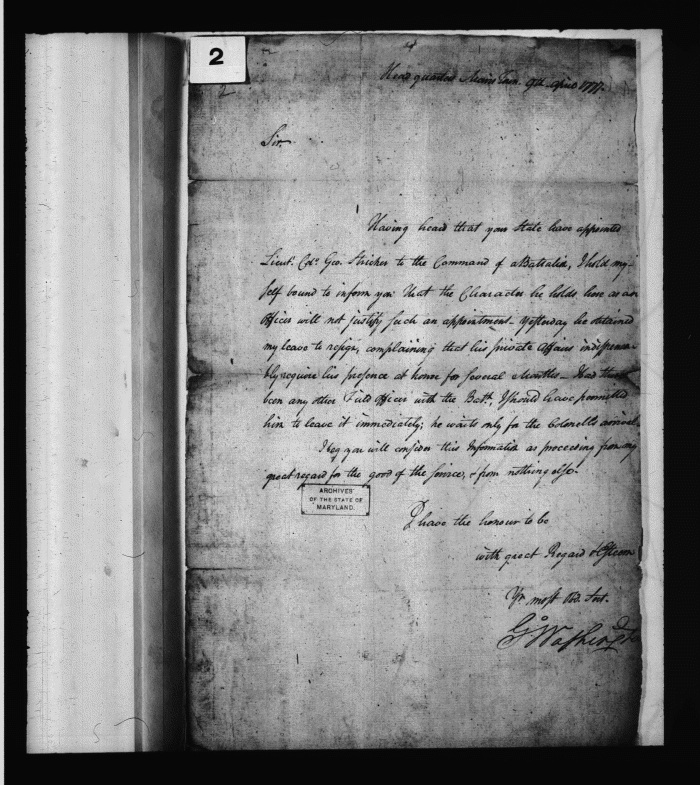 2
2
Head quarters Morris Town 9th April 1777.
Sir.
Having heard that your State have appointed
Lieut. Colo. Geo. Stricker to the Command of a Battalion, I hold my-
self bound to inform you that the Character he holds here as an
Officer will not justify such an appointment_ Yesterday he obtained
my leave to resign, complaining that his private Affairs indispensa-
bly require his presence at home for several Months_ Had there
been any other Field Officer with the Batt., I should have permitted
him to leave it immediately; he waits only for the Colonells arrival
I beg you will consider this Information as proceeding from my
great regard for the good of the Service, & from nothing else.
ARCHIVES
OF THE STATE OF
MARYLAND.
I have the honour to be
with great Regard & Esteem
Yr. most Obd. Servt.
Go Washington